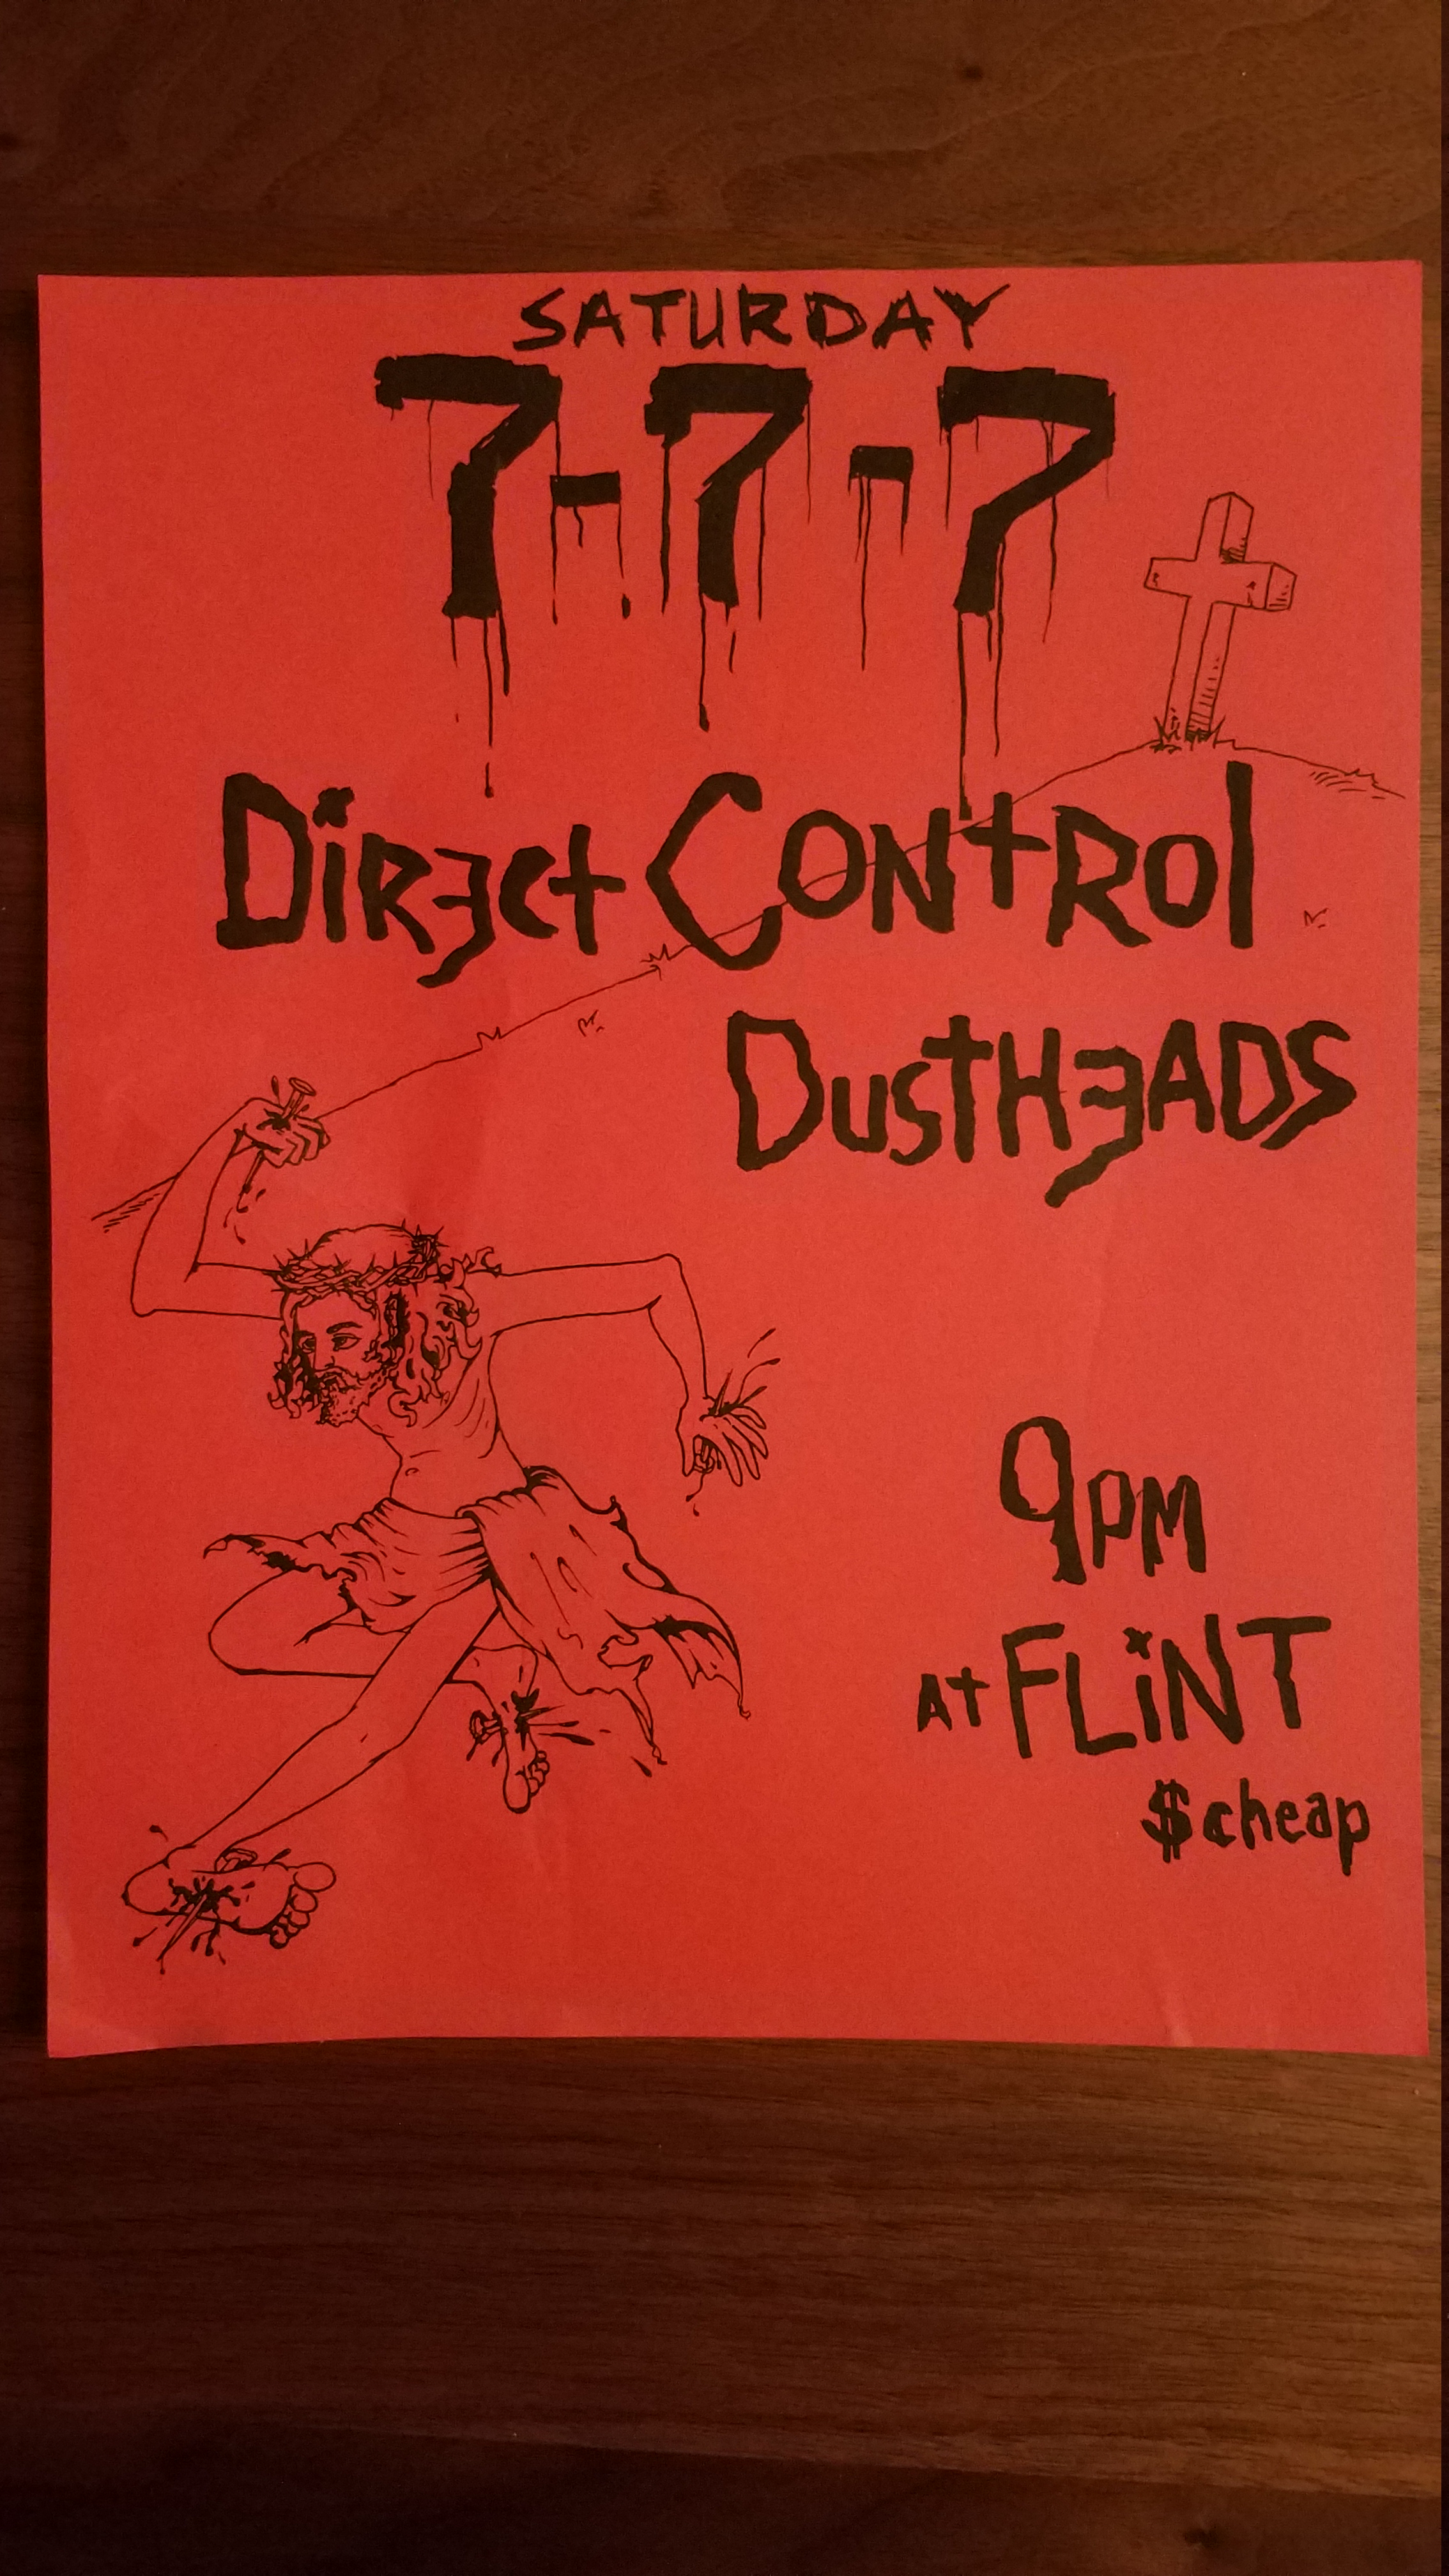 SATURDAY
7-7-7
DiRECt CONtROl
DustHEADS
9PM
At FLiNT
$cheap